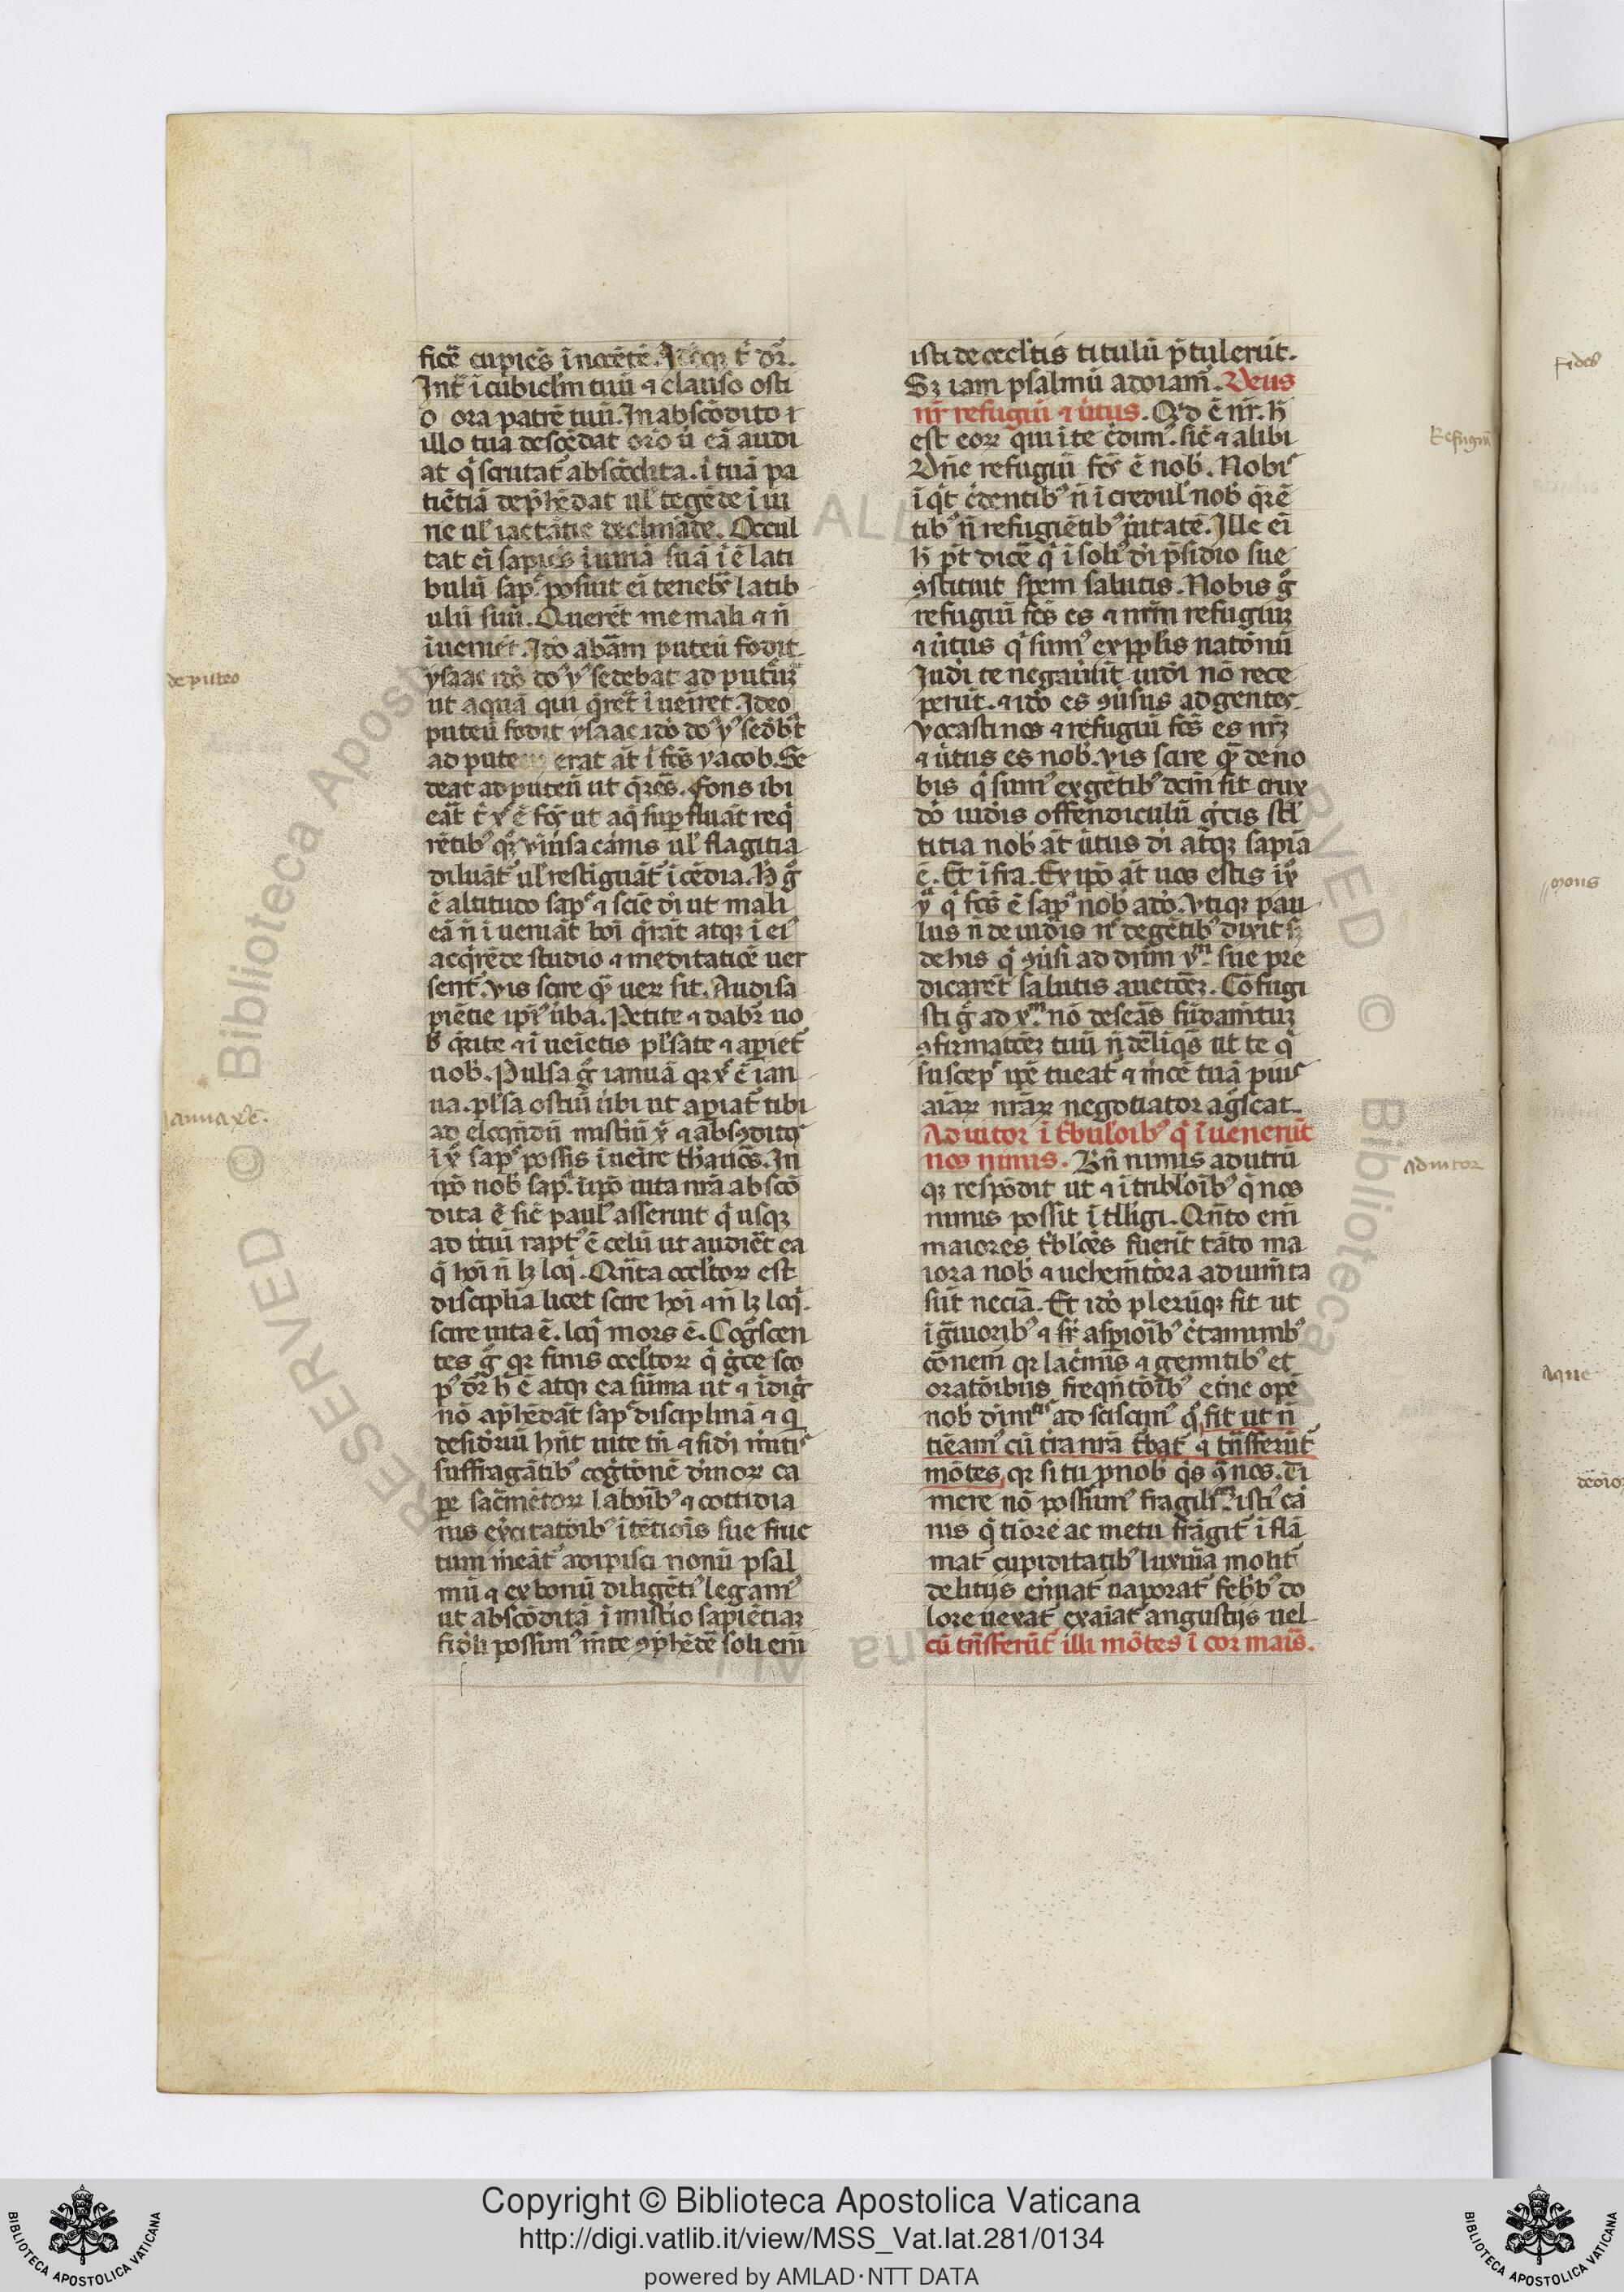 ficē cupiēs īnocētē. Idcq; t̄ dr̄.
Int̄ ī cubicl̄m tuū ⁊ clauso osti
o ora patrē tuū. In abscōdito ⁊
illo tua descēdat orō ū eā audi
at q̇ scrutat̄ abscōdita. ī tuā pa
tiētiā dep̄hēdat ul̄ tegēde ī iu
ne ul̄ iactātie declināde. Occul
tat ei sapiēs ī umā suā ī ē lati
bulū sap̄. posuit ei tenebr̄ latib
ulū suū. Querēt me mali ⁊ n̄
īueniēt. Idō abām puteū fodit
ysaac idō dō yͨ sedebat ad puteū
ut aquā qui q̄ret īueīret. Ideo
puteū fodit ysaac idō dō yͨ sedb̄t
ad puteū erat āt ī fōs yacob. Se
deat ad puteū ut q̄rēs. fons ibi
eāt t̄ x̄ ē fōs ut aq̄ suꝑfluāt req̇
rētibꝰ qꝫ uiūsa cānis ul̄ flagitia
diluāt̄ ul̄ restīguāt̄ īcēdia. H̄ ḡ
ē altitudo sap̄ ⁊ scīe dī ut mali
eā n̄ īueniāt boī q̄rāt atqꝫ ī eī
acq̇rēde studio ⁊ meditatiōē uer
sent̄. Vis scire q̄ ueꝝ sit. Audi sa
piētie ip̄iꝰ ūba. Petite ⁊ dabr̄ uo
b̄ q̄rite ⁊ īueīetis pl̄sate ⁊ apiet̄
uob̄. Pulsa ḡ ianuā qꝛ x̄ ē ian
ua. pl̄sa ostiū ūbi ut apiat̄ tibi
ad eloq̄ndū mistiū x̄ ⁊ absꝯditꝰ
ī x̄ sap̄ possis īueīre thāuos. In
ip̄o nob̄ sap̄. īip̄o uita nrā abscō
dita ē sic̄ paulꝰ asseruit q̇ usqꝫ
ad tīū raptꝰ ē celū ut audiēt ea
q̄ hoī n̄ lꝫ loq̇. Qn̄ta occl̄toꝝ est
disciplīa licet scire hoī ⁊ n̄ lꝫ loq̇.
scire uita ē. loq̇ mors ē. Cog̊scen
tes ḡ qꝛ finis occl̄toꝝ q̇ ḡce sco
pꝰ dr̄ h̄ ē atqꝫ ea sūma ut ⁊ īdiḡ
nō ap̄hēdāt sap̄ disciplinā ⁊ q̇
desid̄iū hn̄t uite tn̄ ⁊ fidī m̄itis
suffragātibꝰ cog̊tōnē dīnoꝝ ca
pe sac̄mētoꝝ laboībꝰ ⁊ cottidia
nis exc̄itatōībꝰ ītētiōīs sue fruc
tum m̄eāt̄ adipisci nonū psal
mū ⁊ ex bonū diligētīꝰ legamꝰ
ut abscōditā ī mistīo sapiētiaꝝ
fidōli possimꝰ m̄te ꝯp̄hēdē soli em̄
de puteo
ianua xͨ ē.
isti de occl̄tis titulū p̄tulerūt.
Sꝫ iam psalmū adoiam̄. Deus
nr̄ refugiū ⁊ ūtus. Qd̓ ē nr̄. h̄
est eoꝝ qui ī te c̄dimꝰ. sic̄ ⁊ alibi
Dn̄e refugiū fc̄s ē nob̄. Nobis
īq̇t c̄dentibꝰ n̄ ī credul̄ nob̄ q̄rē
tibꝰ n̄ refugiētibꝰ ūitatē. Ille eī
h̄ pt̄ dicē q̇ ī solīꝰ dī p̄sidio sue
ꝯstituit spem salutis. Nobis ḡ
refugiū fc̄s es ⁊ nr̄m refugiuꝫ
⁊ ūtus q̇ sumꝰ ex pplīs natōnū
Iudī te negauūt iudī nō rece
perūt. ⁊ idō es ꝯūsus ad gentes
vocasti nos ⁊ refugiū fc̄s es nr̄ꝫ
⁊ ūtus es nob̄. vis scire q̄ de no
bis q̇ sumꝰ ex gētibꝰ dc̄m sit crux
dō iudīs offendiculū ḡcis stl̄
titia nob̄ āt ūtus dī atqꝫ sapīa
ē. Et īfra. Ex ip̄o āt uos estis ī x̄
y̓ q̇ fc̄s ē sap̄ nob̄ adō. Vtiqꝫ pau
lus n̄ de iudīs nꝰ de gētibꝰ dixit sꝫ
de his q̇ ꝯūsi ad dnm̄ yͫ sue pre
dicarēt salutis auctōeꝫ. Cōfugi
sti ḡ ad xͫ. nō deseās fūdam̄tuꝫ
ꝯfirmatōeꝫ tuū n̄ dēliq̄s ut te q̇
suscepͥ ip̄e tueat̄ ⁊ m̄cē tuā puis
aiāꝝ nrāꝝ negotiator ag̊scat.
Adiutor ī tbul̄oībꝰ q̄ īuenerūt
nos nimis. Bn̄ nimis ad utrū
qꝫ respōdit ut ⁊ ī tribl̄oībꝰ q̄ nos
nimis possit ītll̄igi. Qn̄to em̄
maiores tbl̄oēs fuerīt tāto ma
iora nob̄ ⁊ uehem̄tōra adium̄ta
sūt necīa. Et idō plerūqꝫ fit ut
ī ḡuioribꝰ ⁊ sr̄ aspioībꝰ c̄tamīnibꝰ
cōnem̄ qꝛ lac̄mis ⁊ gemitibꝰ et
oratōībus freqn̄tōībꝰ et̄ne opē
nob̄ dīmͭⁱˢ ad sciscimꝰ q̇ fit ut n̄
tiēamꝰ cū tīra nrā tbat̄ ⁊ tn̄sferūt̄
mōtes qꝛ si tu p nob̄ q̇s ꝯ nos. Ti
mere nō possumꝰ fragilīͫ. isti cā
nis q̄ tiōre ac metu frāgit̄ īflā
mat̄ cupiditatibꝰ luxuīa molit̄
delitijs en̄iat̄ uaporat̄ febbꝰ do
lore uexat̄ exaīat̄ angustijs uel
cū tn̄sferūt̄ illi mōtes ī cor maīs.
Refugiū
adiutor
Fides
mons
aque
Copyright © Biblioteca Apostolica Vaticana
http://digi.vatlib.it/view/MSS_Vat.lat.281/0134
powered by AMLAD·NTT DATA
BIBLIOTECA APOSTOLICA VATICANA
BIBLIOTECA APOSTOLICA VATICANA